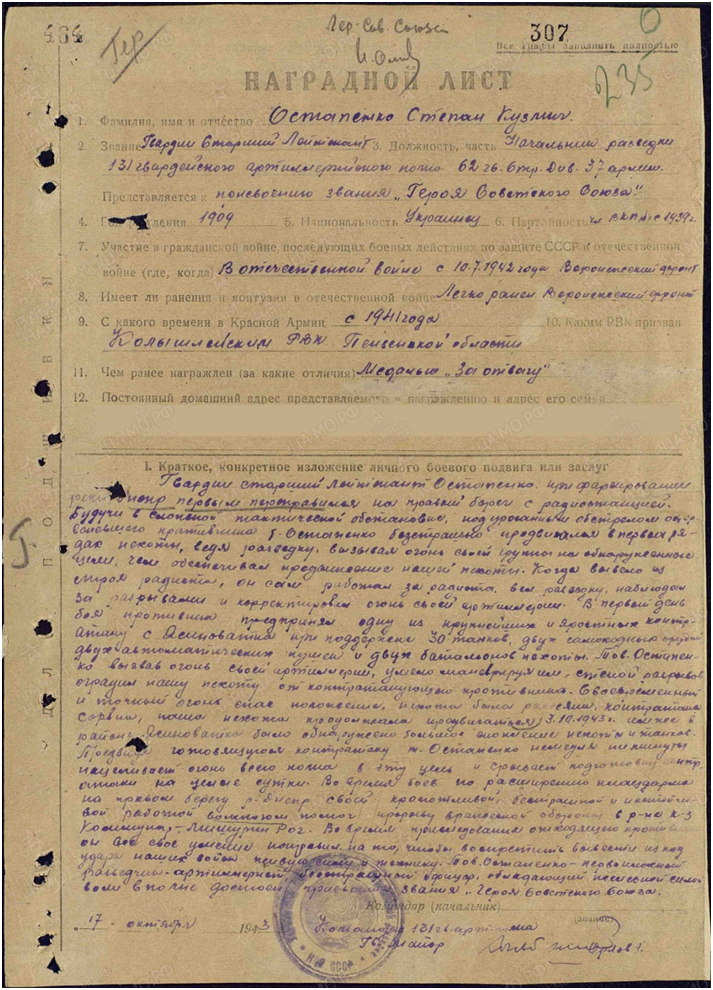 464
Гер
Гер. Сов. Союза
307
Все графы заполнить полностью
235
НАГРАДНОЙ ЛИСТ
1. Фамилия, имя и отчество Остапенко Степан Кузмич
2. Звание Гвардии Старший Лейтенант 3. Должность, часть Начальник разведки
131 гвардейского артиллерийского полка 62 гв. Стр. Див. 37 армии.
Представляется к присвоению звания „Героя Советского Союза"
4. Год рождения 1909 5. Национальность Украинец 6. Партийность чл ВКП/б/ с 1939г.
7. Участие в гражданской войне, последующих боевых действиях по защите СССР и отечественной
войне (где, когда) В отечественной войне с 10.7.1942 года Воронежский фронт
8. Имеет ли ранения и контузии в отечественной войне Легко ранен Воронежский фронт
9. С какого времени в Красной Армии с 1941 года 10. Каким РВК призван
Колышлейским РВК Пензенской области
11. Чем ранее награжден (за какие отличия) Медалью „За отвагу"
12. Постоянный домашний адрес представляемого к награждению и адрес его семьи
I. Краткое, конкретное изложение личного боевого подвига или заслуг
Гвардии старший Лейтенант Остапенко при форсировании
реки Днепр первым переправился на правый берег с радиостанцией.
Будучи в сложной тактической обстановке, под ураганным обстрелом
противника т. Остапенко бесстрашно продвигался в первых ря-
дах пехоты, ведя разведку, вызывал огонь своей группы на обнаруженные
цели, чем обеспечивал продвижение нашей пехоты. Когда вывело из
строя радиста, он сам работал за радиста, вел разведку, наблюдал
за разрывами и корректировал огонь своей артиллерии. В первый день
боя противник предпринял одну из крупнейших и яростных контр-
атаку с Ясиноватка при поддержке 30 танков, двух самоходных орудий
двух автоматических пушек и двух батальонов пехоты. Тов. Остапен-
ко вызвав огонь своей артиллерии, умело маневрируя им, стеной разрывов
оградил нашу пехоту от контратакующего противника. Своевременный
и точный огонь спас положение, пехота была рассеяна, контратака
сорвана, наша пехота продолжала продвигаться. 3.10.1943г. южнее в
районе Ясиноватка было обнаружено большое скопление пехоты и танков.
Предвидя готовящуюся контратаку т. Остапенко не медля ни минуты
нацеливает огонь всего полка в эту цель и срывает подготовку контр-
атаки на целые сутки. Во время боев по расширению плацдарма
на правом берегу р. Днепр своей кропотливой, бесстрашной и
работой помог прорыву вражеской обороны в р-не к-з
Коммунар - Лишурин Рог. Во время преследования отходящего
он все свое умение направил на то, чтобы воспретить вывести из под
удара наших войск живую силу и технику. Тов. Остапенко - первоклассный
разведчик-артиллерист, бесстрашный офицер, обладающий железной силой
воли вполне достоин присвоения звания „Героя Советского Союза.
Командир (начальник)
(звание)
17 октября 1943
Командир 131 гв. артполка
Гв. Майор
НКО СССР
ДЛЯ ПОДШИВКИ